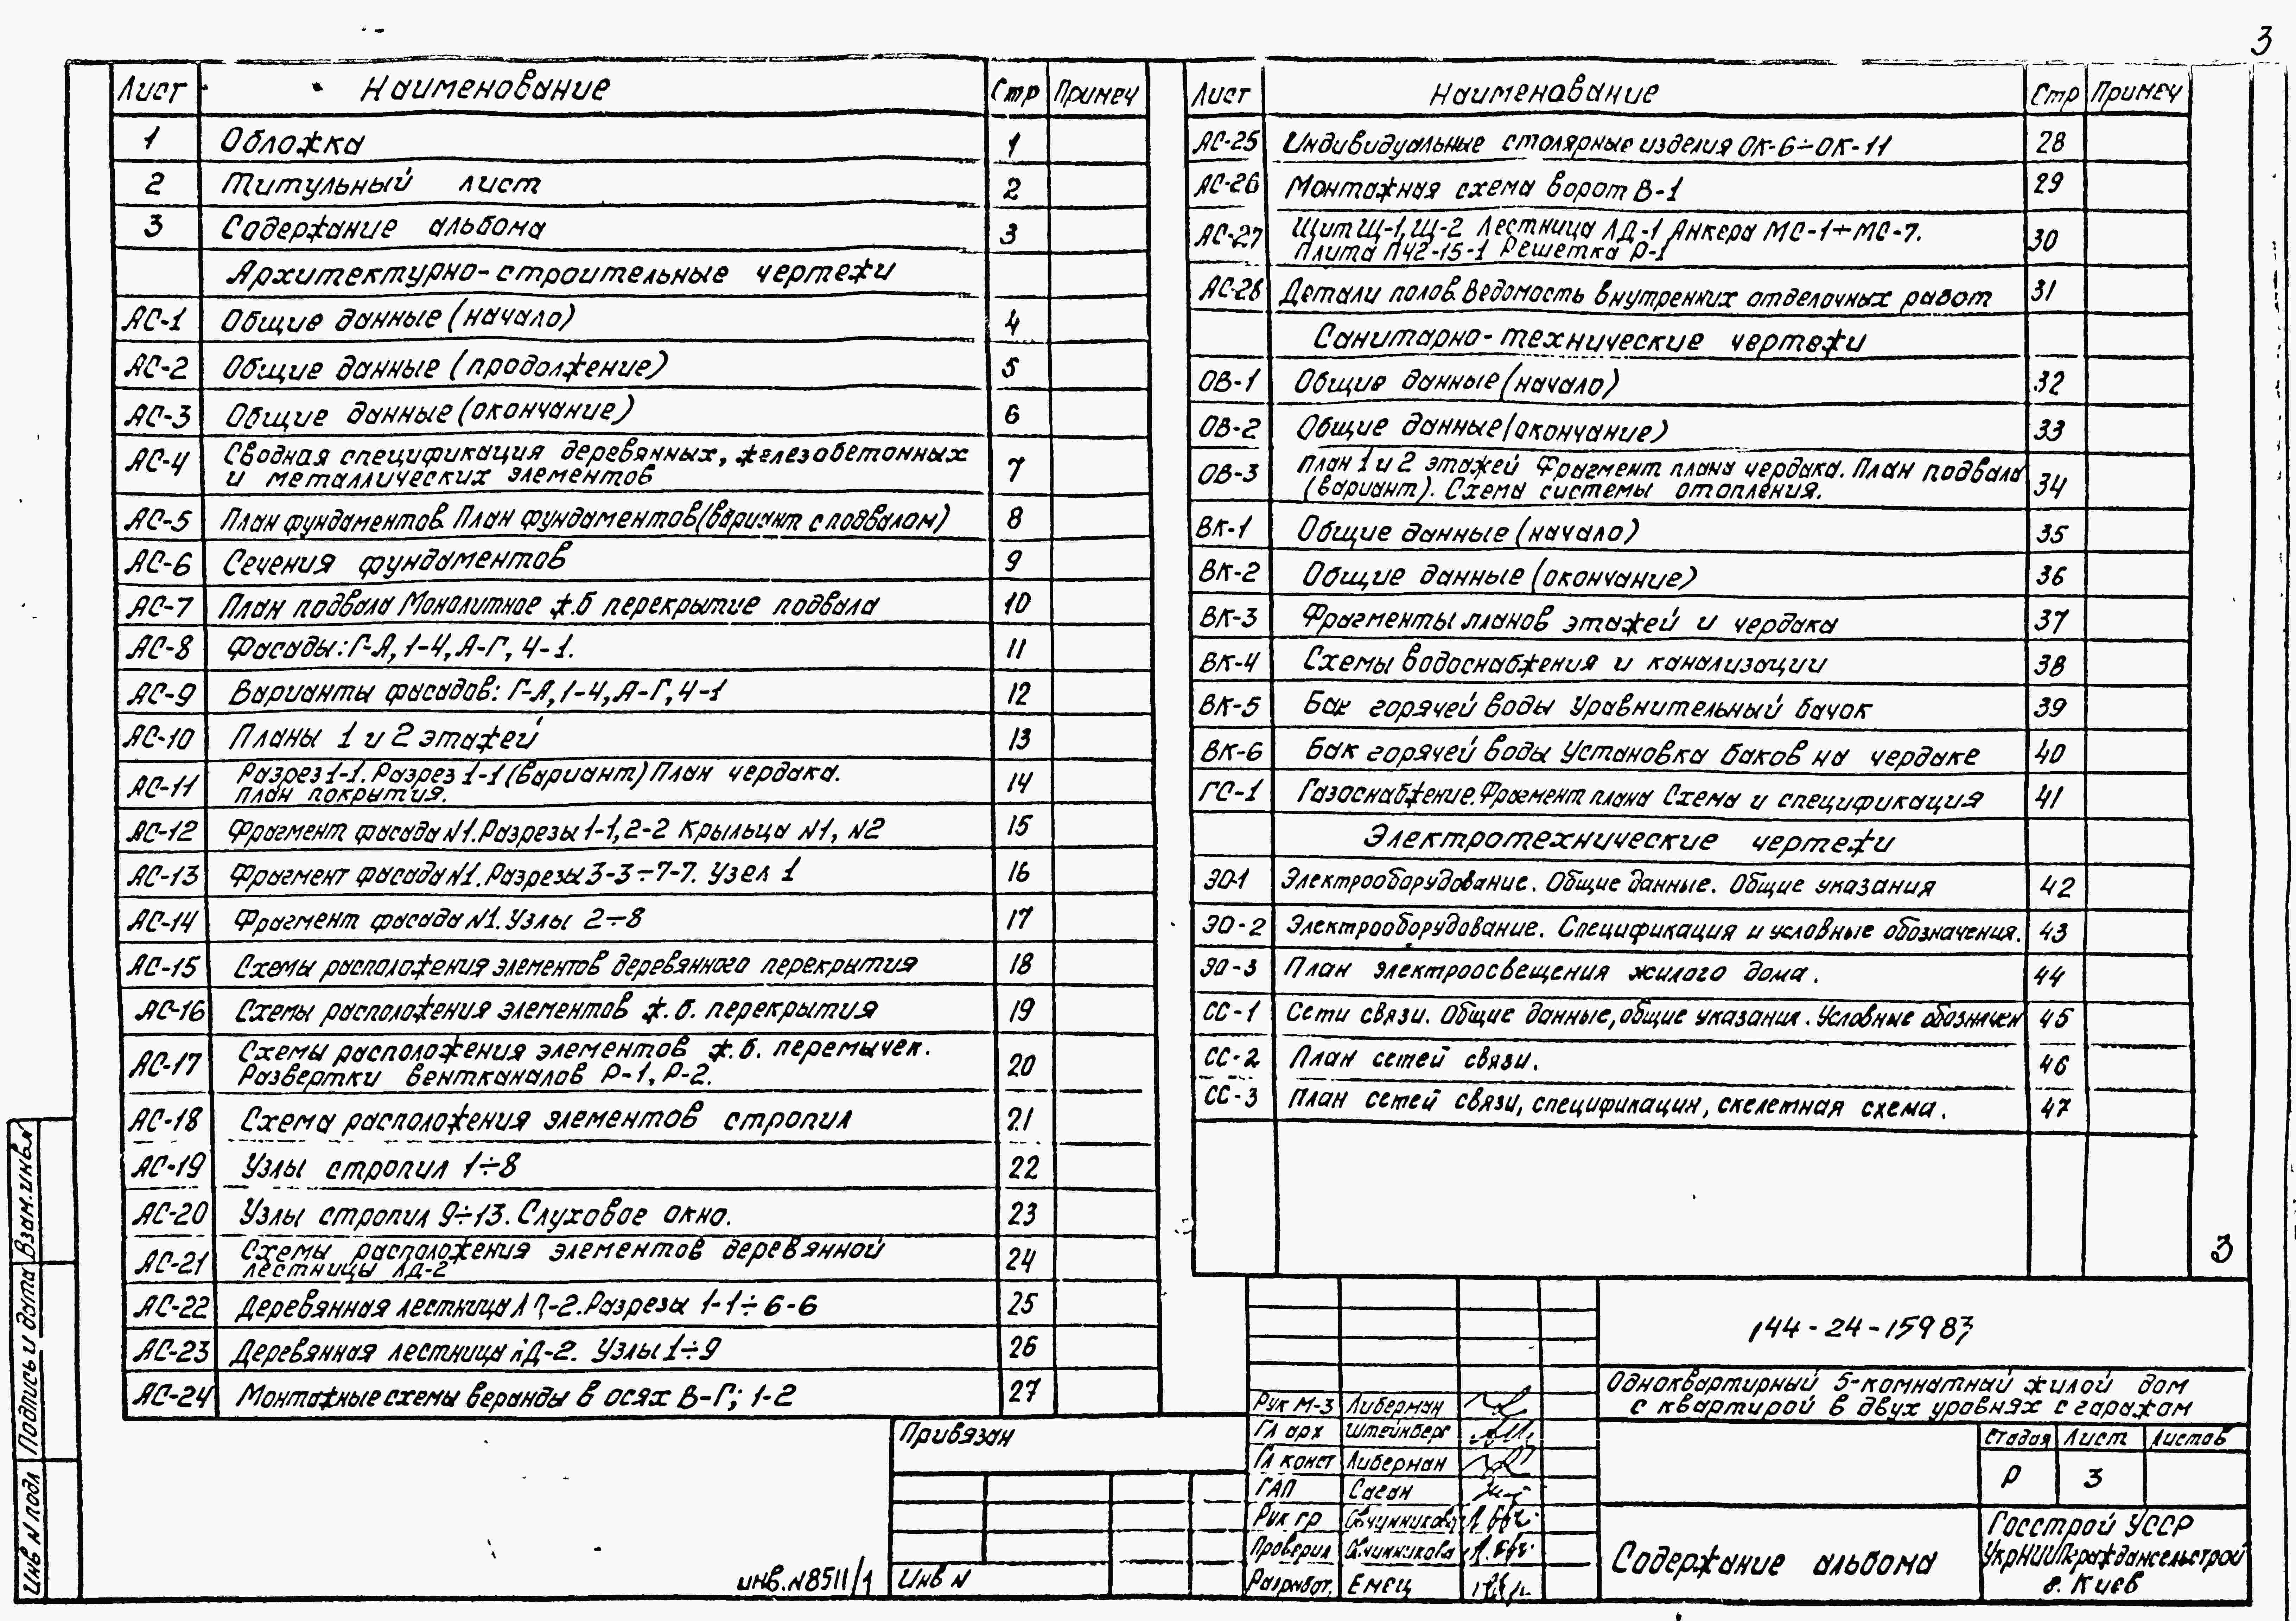 3
Лист Наименование Стр Примеч
1 Обложка 1
2 Титульный лист 2
3 Содержание альбома 3
Архитектурно-строительные чертежи
АС-1 Общие данные (начало) 4
АС-2 Общие данные (продолжение) 5
АС-3 Общие данные (окончание) 6
АС-4 Сводная спецификация деревянных, железобетонных 7
и металлических элементов
АС-5 План фундаментов. План фундаментов (вариант с подвалом) 8
АС-6 Сечения фундаментов 9
АС-7 План подвала Монолитное ж.б перекрытие подвала 10
АС-8 Фасады: Г-А, 1-4, А-Г, 4-1. 11
АС-9 Варианты фасадов: Г-А, 1-4, А-Г, 4-1 12
АС-10 Планы 1 и 2 этажей 13
АС-11 Разрез 1-1. Разрез 1-1 (вариант) План чердака. 14
план покрытия.
АС-12 Фрагмент фасада N1. Разрезы 1-1, 2-2 Крыльца N1, N2 15
АС-13 Фрагмент фасада N1. Разрезы 3-3÷7-7. Узел 1 16
АС-14 Фрагмент фасада N1. Узлы 2÷8 17
АС-15 Схемы расположения элементов деревянного перекрытия 18
АС-16 Схемы расположения элементов ж.б. перекрытия 19
АС-17 Схемы расположения элементов ж.б. перемычек. 20
Развертки вентканалов Р-1, Р-2.
АС-18 Схема расположения элементов стропил 21
АС-19 Узлы стропил 1÷8 22
АС-20 Узлы стропил 9÷13. Слуховое окно. 23
АС-21 Схемы расположения элементов деревянной 24
лестницы ЛД-2
АС-22 Деревянная лестница ЛД-2. Разрезы 1-1÷6-6 25
АС-23 Деревянная лестница ЛД-2. Узлы 1÷9 26
АС-24 Монтажные схемы веранды в осях В-Г; 1-2 27
Лист Наименование Стр Примеч
АС-25 Индивидуальные столярные изделия ОК-6÷ОК-11 28
АС-26 Монтажная схема ворот В-1 29
АС-27 Щит Щ-1, Щ-2 Лестница ЛД-1 Анкера МС-1÷МС-7. 30
Плита П42-15-1 Решетка Р-1
АС-28 Детали полов. Ведомость внутренних отделочных работ 31
Санитарно-технические чертежи
ОВ-1 Общие данные (начало) 32
ОВ-2 Общие данные (окончание) 33
ОВ-3 План 1 и 2 этажей Фрагмент плана чердака. План подвала 34
(вариант). Схема системы отопления.
ВК-1 Общие данные (начало) 35
ВК-2 Общие данные (окончание) 36
ВК-3 Фрагменты планов этажей и чердака 37
ВК-4 Схемы водоснабжения и канализации 38
ВК-5 Бак горячей воды Уравнительный бачок 39
ВК-6 Бак горячей воды Установка баков на чердаке 40
ГС-1 Газоснабжение. Фрагмент плана Схема и спецификация 41
Электротехнические чертежи
ЭО-1 Электрооборудование. Общие данные. Общие указания 42
ЭО-2 Электрооборудование. Спецификация и условные обозначения. 43
ЭО-3 План электроосвещения жилого дома. 44
СС-1 Сети связи. Общие данные, общие указания. Условные обозначен 45
СС-2 План сетей связи. 46
СС-3 План сетей связи, спецификации, скелетная схема. 47
3
144-24-159 83
Одноквартирный 5-комнатный жилой дом
с квартирой в двух уровнях с гаражом
Стадия Лист Листов
Р 3
Содержание альбома
Госстрой УССР
УкрНИИПграждансельстрой
г. Киев
Рук М-3 Либерман
Гл арх Штейнберг
Гл конст Либерман
ГАП Саган
Рук гр Овчинникова
Проверил Овчинникова
Разработ. Емец
Привязан
Инв N
инв. N8511/1
Взам. инв. N
Подпись и дата
Инв N подл